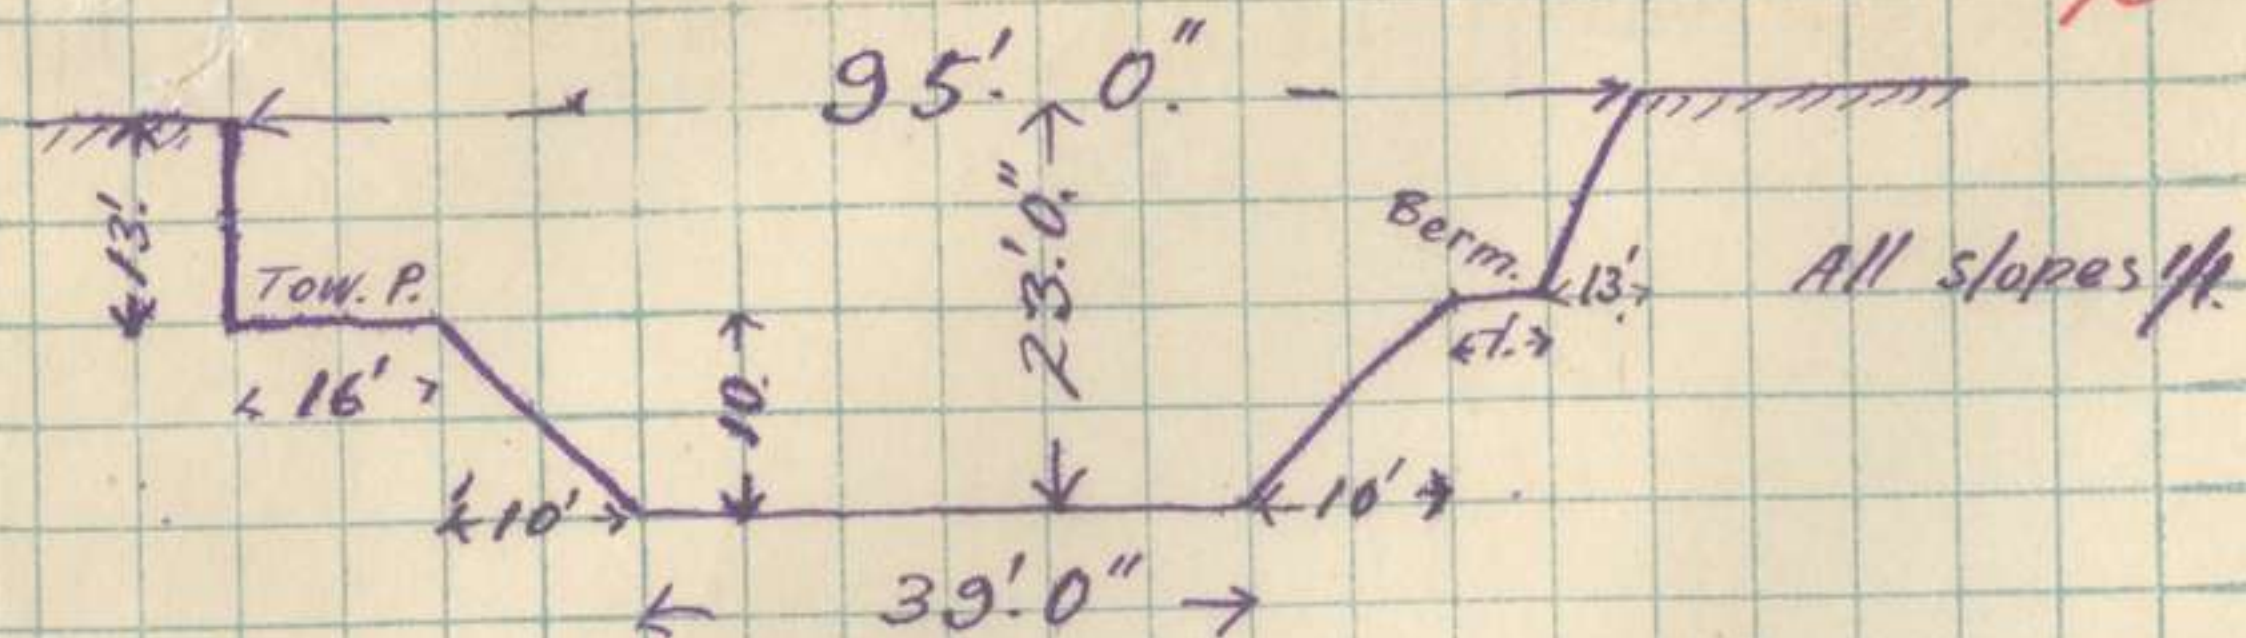 95'. 0."
13'.
23.'0."
Berm.
Tow. P.
13'.
All slopes 1/1.
7.
16'
10.
10'
10'
39'.0"